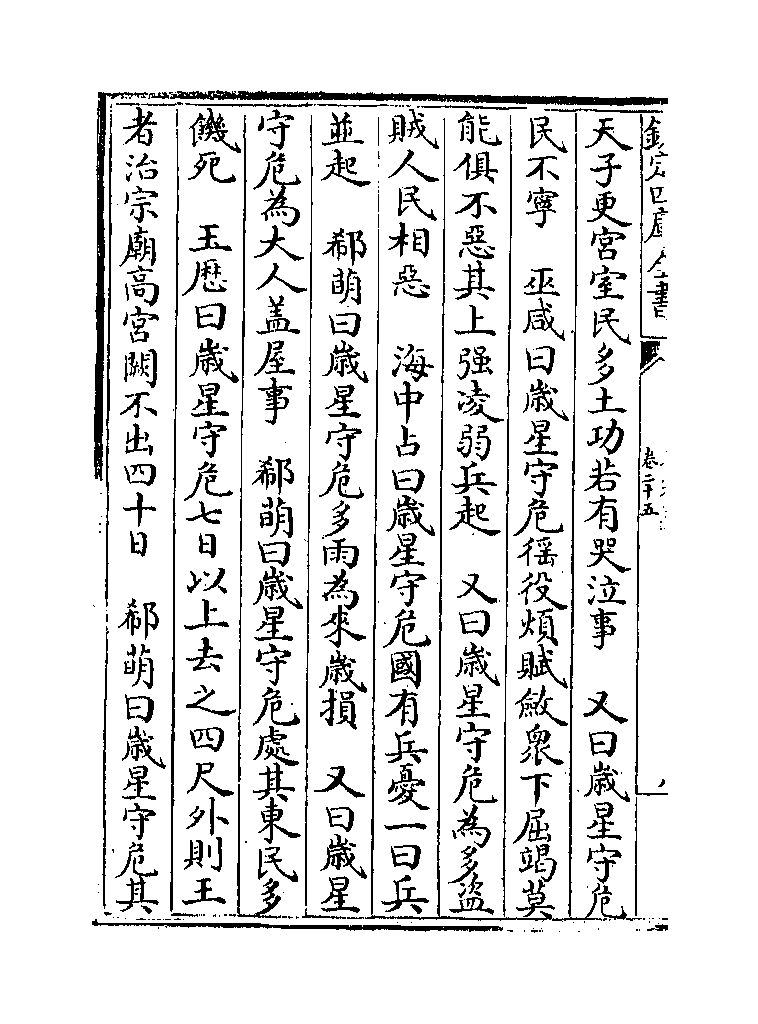 欽定四庫全書
卷二十五
天子更宫室民多土功若有哭泣事　又曰歲星守危
民不寧　巫咸曰歲星守危徭役煩賦斂衆下屈竭莫
能俱不惡其上强凌弱兵起　又曰歲星守危為多盗
賊人民相惡　海中占曰歲星守危國有兵憂一曰兵
並起　郗萌曰歲星守危多雨為來歲損　又曰歲星
守危為大人盖屋事　郗萌曰歲星守危處其東民多
饑死　玉厯曰歲星守危七日以上去之四尺外則王
者治宗廟高宫闕不出四十日　郗萌曰歲星守危其